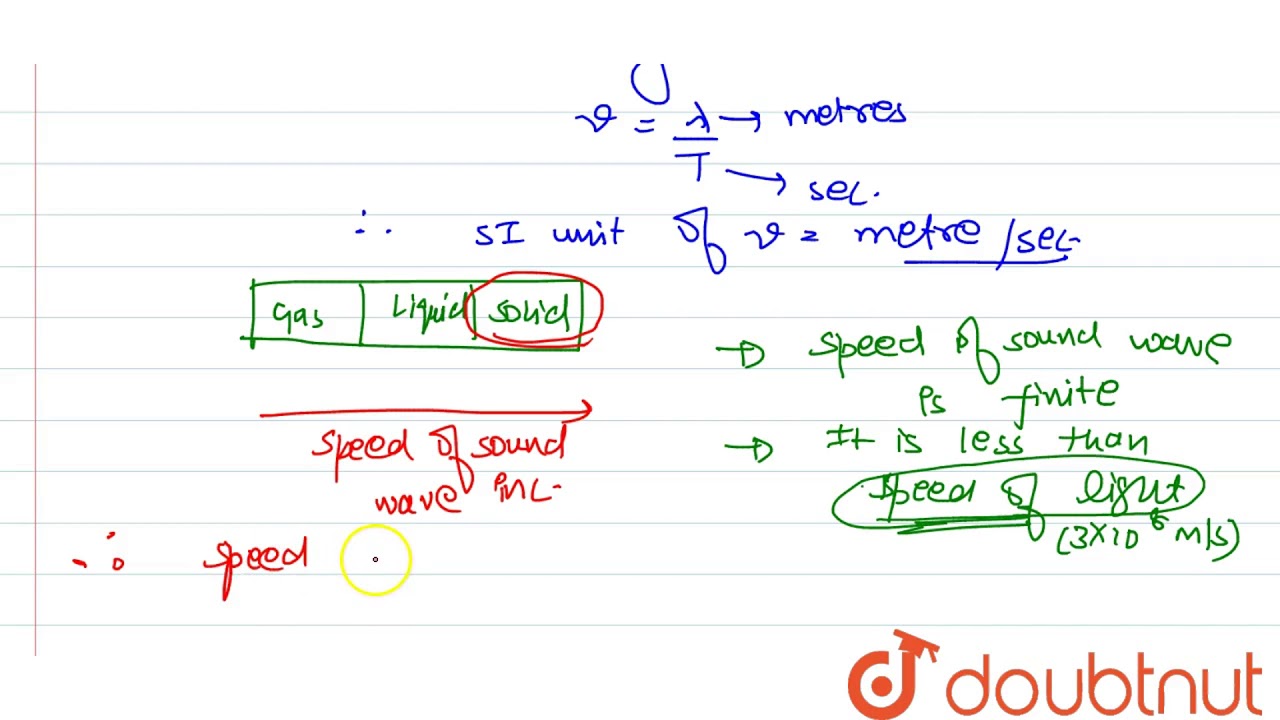 v = λ/T → metres
→ sec.
∴ SI unit of v = metre/sec
Gas Liquid solid
speed of sound
wave inc.
∴ speed
→ speed of sound wave
is finite
→ It is less than
speed of light
(3×10⁸ m/s)
doubtnut